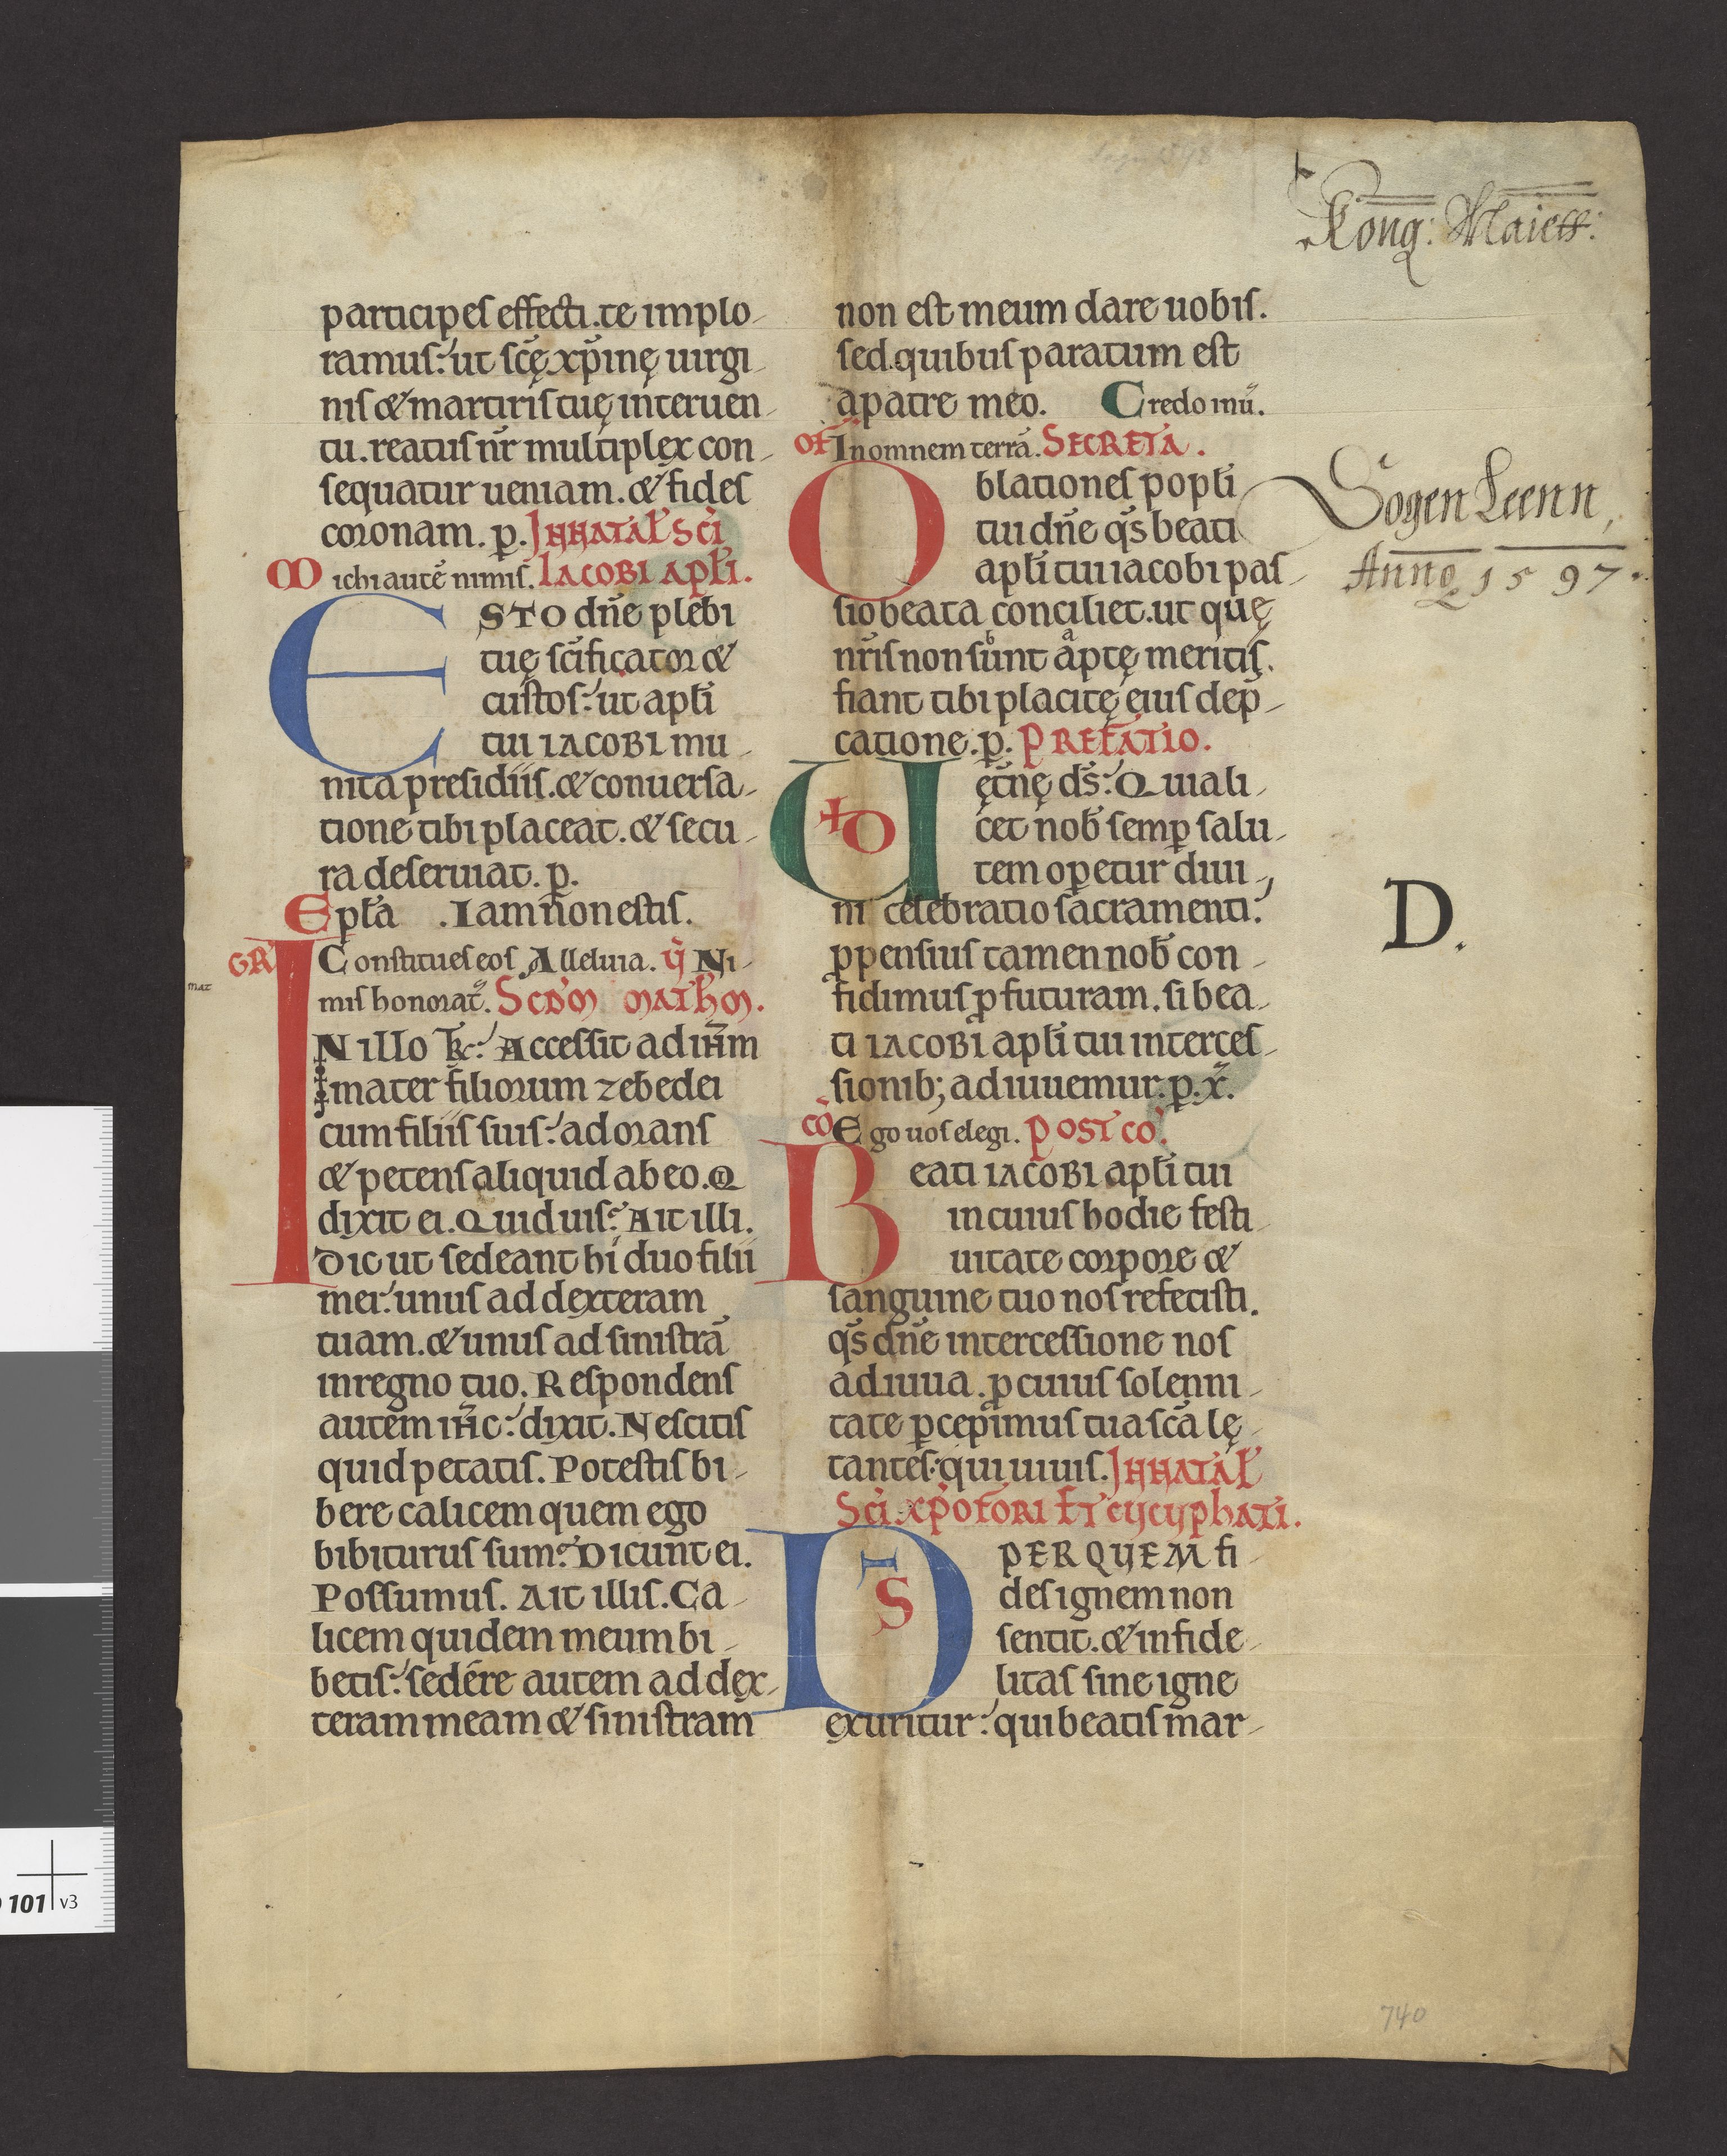 Kong: Maiett:
participes effecti. te implo-
ramus: ut scę xp̄inę uirgi-
nis & martiris tuę interuen-
tu. reatus nr̄ multiplex con-
sequatur ueniam. & fides
coronam. p. IN NATAL SCI
Michi autē nimis. IACOBI APLI.
ESTO dn̄e plebi
tuę scificator &
custos: ut apli
tui IACOBI mu-
nita presidiis. & conuersa-
tione tibi placeat. & secu-
ra deseruiat. p.
Epła . Iam non estis.
GR Constitues eos Alleluia. ꝟ Ni-
mat
mis honorat. SCDM MATHM.
IN illo t̄&: Accessit ad ihm
mater filiorum zebedei
cum filiis suis: adorans
& petens aliquid ab eo. Q
dixit ei. Quid uis? Ait illi.
Dic ut sedeant hi duo filii
mei: unus ad dexteram
tuam. & unus ad sinistrā
in regno tuo. Respondens
autem ih̄c: dixit. Nescitis
quid petatis. Potestis bi-
bere calicem quem ego
bibiturus sum? Dicunt ei.
Possumus. Ait illis. Ca-
licem quidem meum bi-
betis: sedére autem ad dex-
teram meam & sinistram
non est meum dare uobis.
sed. quibus paratum est
a patre meo. Credo mū.
OF In omnem terrā. SECRETA.
Oblationes popli
tui dn̄e qs̄ beati
apli tui iacobi pas-
sio beata conciliet. ut quę
nr̄is non sunt aptę meritis.
b a
fiant tibi placitę eius dep̄-
catione. p. PREFATIO.
U+O ęt̄nę ds̄: Quia li-
cet nob̄ semp̱ salu-
tem op̱etur diui-,
ni celebratio sacramenti:
ppensius tamen nob̄ con-
fidimus p̱futuram. si bea-
ti IACOBI apli tui interces-
sionib; adiuuemur: p. x̄.
CŌ Ego uos elegi. POST CŌ.
Beati IACOBI apli tui
in cuius hodie festi-
uitate corpore &
sanguine tuo nos refecisti.
qs̄ dn̄e intercessione nos
adiuua. p̱ cuius solenni-
tate p̱cepimus tua scā lę-
tantes: qui uiuis. IN NATAL
SCI XPOFORI ET CYCYPHATI.
DS PER QUEM fi-
des ignem non
sentit. & infide-
litas sine igne
exuritur: qui beatis mar-
Sogen Leenn,
Anno 1597.
D.
740
101 v3